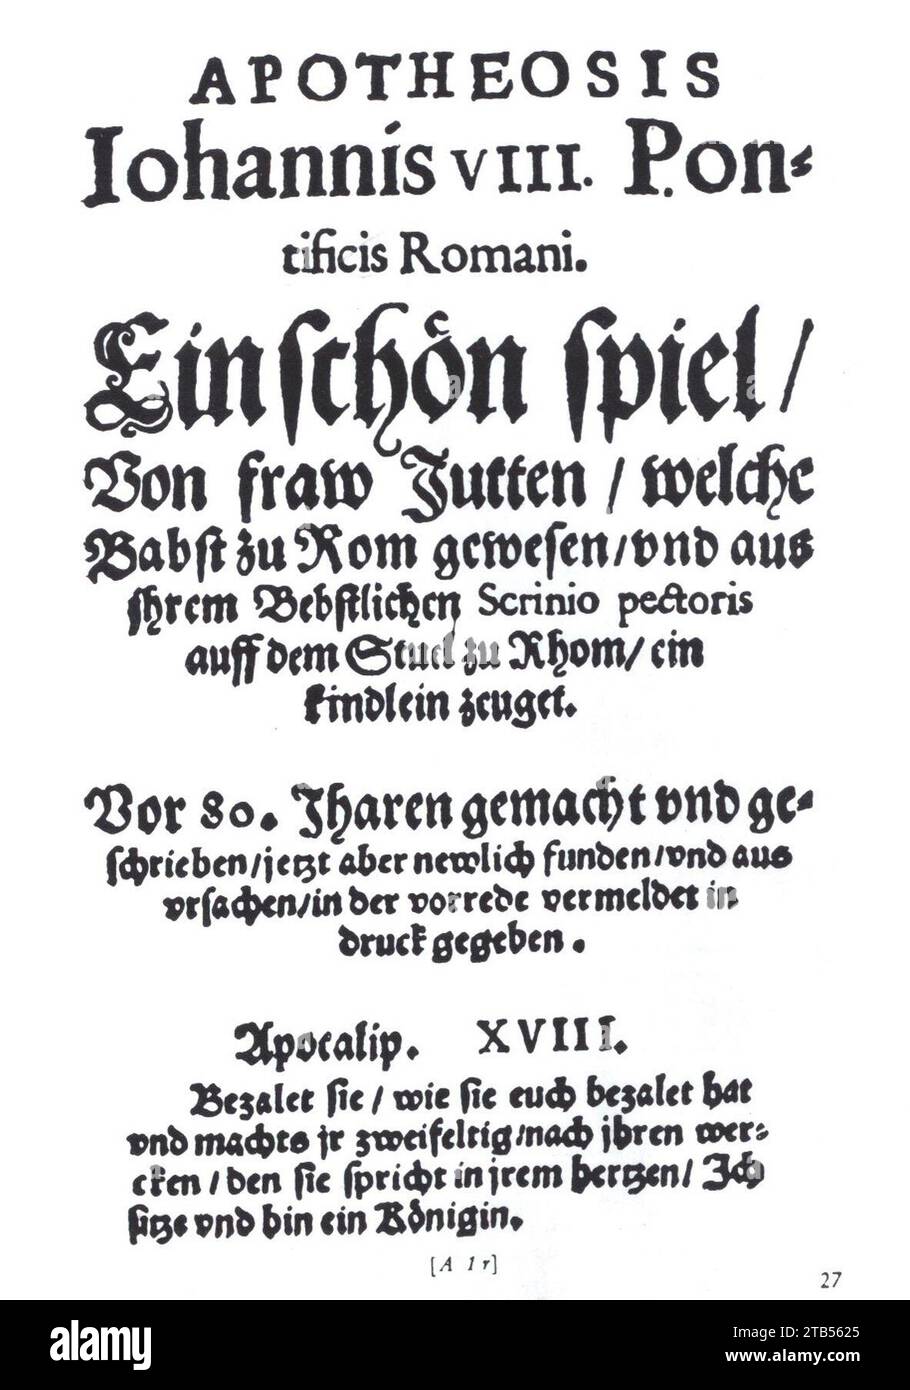 APOTHEOSIS
Iohannis VIII. Pon⸗
tificis Romani.
Ein ſchoͤn ſpiel /
Von fraw Jutten / welche
Babſt zu Rom geweſen / vnd aus
jhrem Bebſtlichen Scrinio pectoris
auff dem Stuel zu Rhom / ein
kindlein zeuget.
Vor 80. Jharen gemacht vnd ge⸗
ſchrieben / jetzt aber newlich funden / vnd aus
vrſachen / in der vorrede vermeldet in
druck gegeben.
Apocalip. XVIII.
Bezalet ſie / wie ſie euch bezalet hat
vnd machts jr zweifeltig / nach jhren wer⸗
cken / den ſie ſpricht in jrem hertzen / Ich
ſitze vnd bin ein Koͤnigin.
[A 1 r]
27
alamy
Image ID: 2TB5625
www.alamy.com